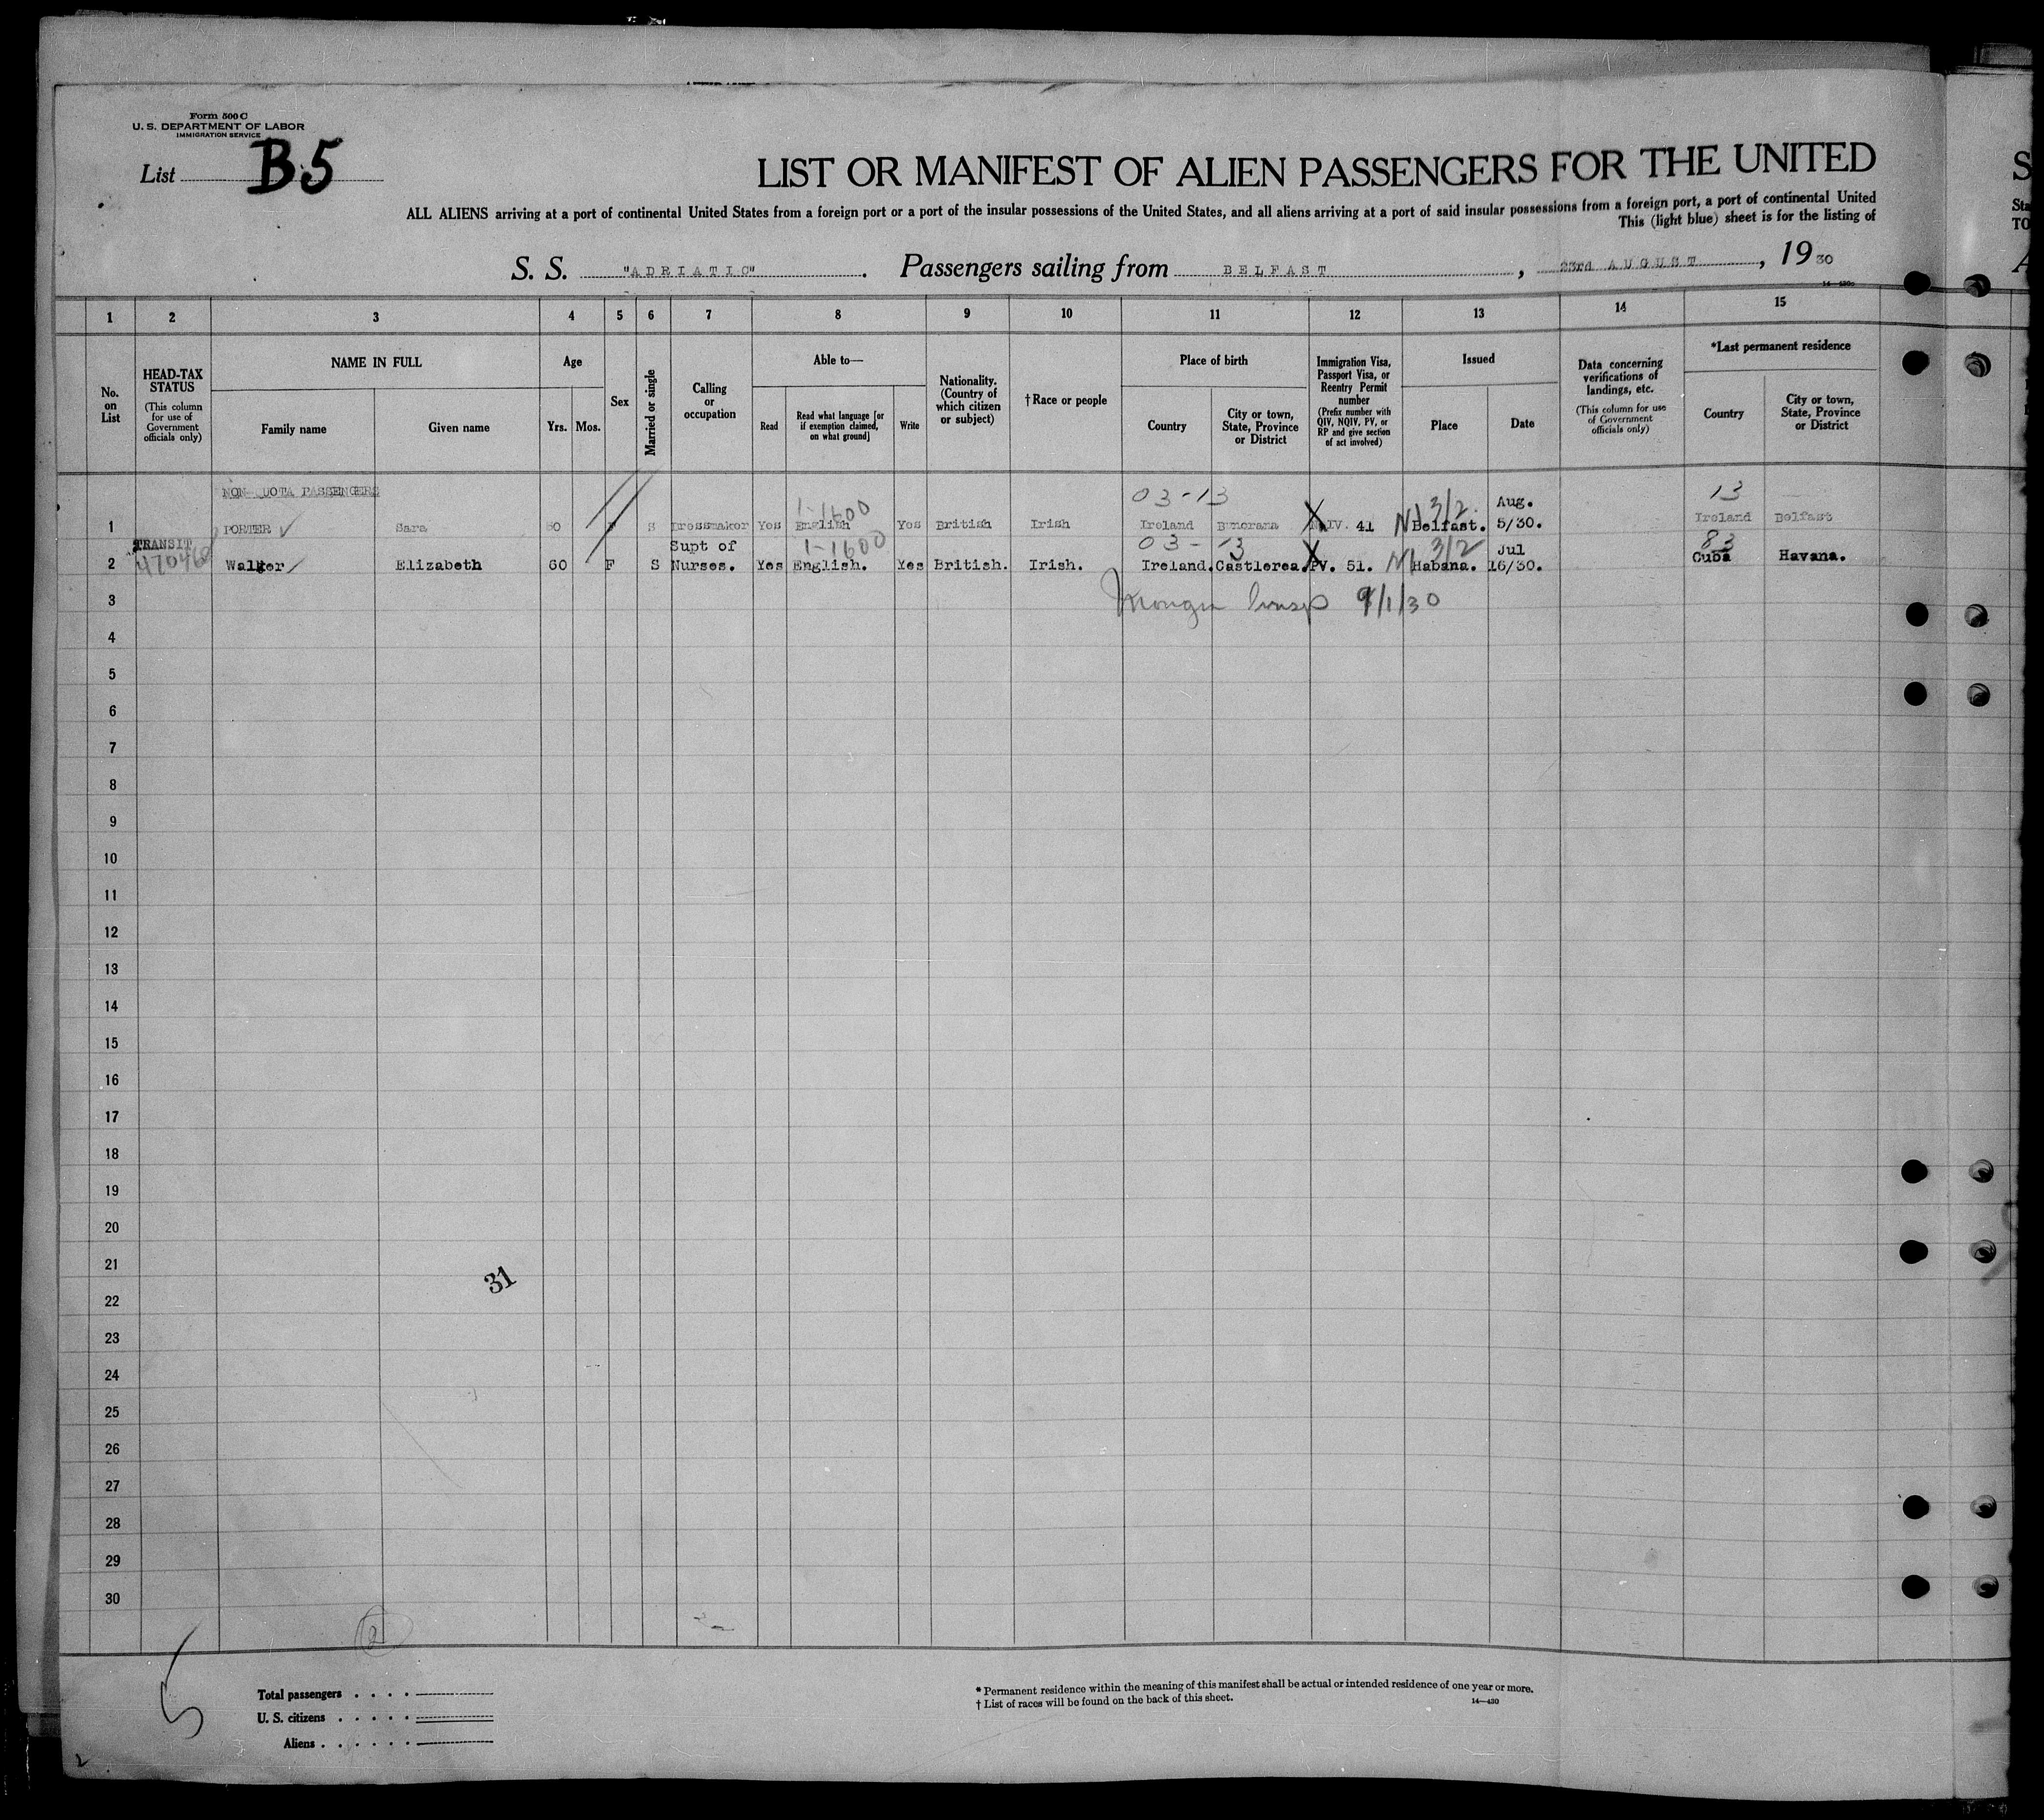 Form 500 C
U. S. DEPARTMENT OF LABOR
IMMIGRATION SERVICE
List B5
LIST OR MANIFEST OF ALIEN PASSENGERS FOR THE UNITED
ALL ALIENS arriving at a port of continental United States from a foreign port or a port of the insular possessions of the United States, and all aliens arriving at a port of said insular possessions from a foreign port, a port of continental United
This (light blue) sheet is for the listing of
S. S. "ADRIATIC". Passengers sailing from BELFAST, 23rd AUGUST, 1930
1 2 3 4 5 6 7 8 9 10 11 12 13 14 15
No. on List
HEAD-TAX STATUS
(This column for use of Government officials only)
NAME IN FULL
Family name
Given name
Age
Yrs. Mos.
Sex
Married or single
Calling or occupation
Able to—
Read
Read what language [or if exemption claimed, on what ground]
Write
Nationality. (Country of which citizen or subject)
†Race or people
Place of birth
Country
City or town, State, Province or District
Immigration Visa, Passport Visa, or Reentry Permit number
(Prefix number with QIV, NQIV, PV, or RP and give section of act involved)
Issued
Place
Date
Data concerning verifications of landings, etc.
(This column for use of Government officials only)
*Last permanent residence
Country
City or town, State, Province or District
NON-QUOTA PASSENGERS
1-1600 03-13 312 Aug. 13
1 PORTER Sara S Dressmaker Yes English Yes British Irish Ireland 41 Belfast. 5/30. Ireland Belfast
TRANSIT Supt of 1-1600 03-13 312 Jul 83
2 Walker Elizabeth 60 F S Nurses. Yes English. Yes British. Irish. Ireland. Castlerea. PV. 51. Habana. 16/30. Cuba Havana.
3 9/1/30
4
5
6
7
8
9
10
11
12
13
14
15
16
17
18
19
20
21
31
22
23
24
25
26
27
28
29
30
2
5
Total passengers
U. S. citizens
Aliens
* Permanent residence within the meaning of this manifest shall be actual or intended residence of one year or more.
† List of races will be found on the back of this sheet.
14—430
2